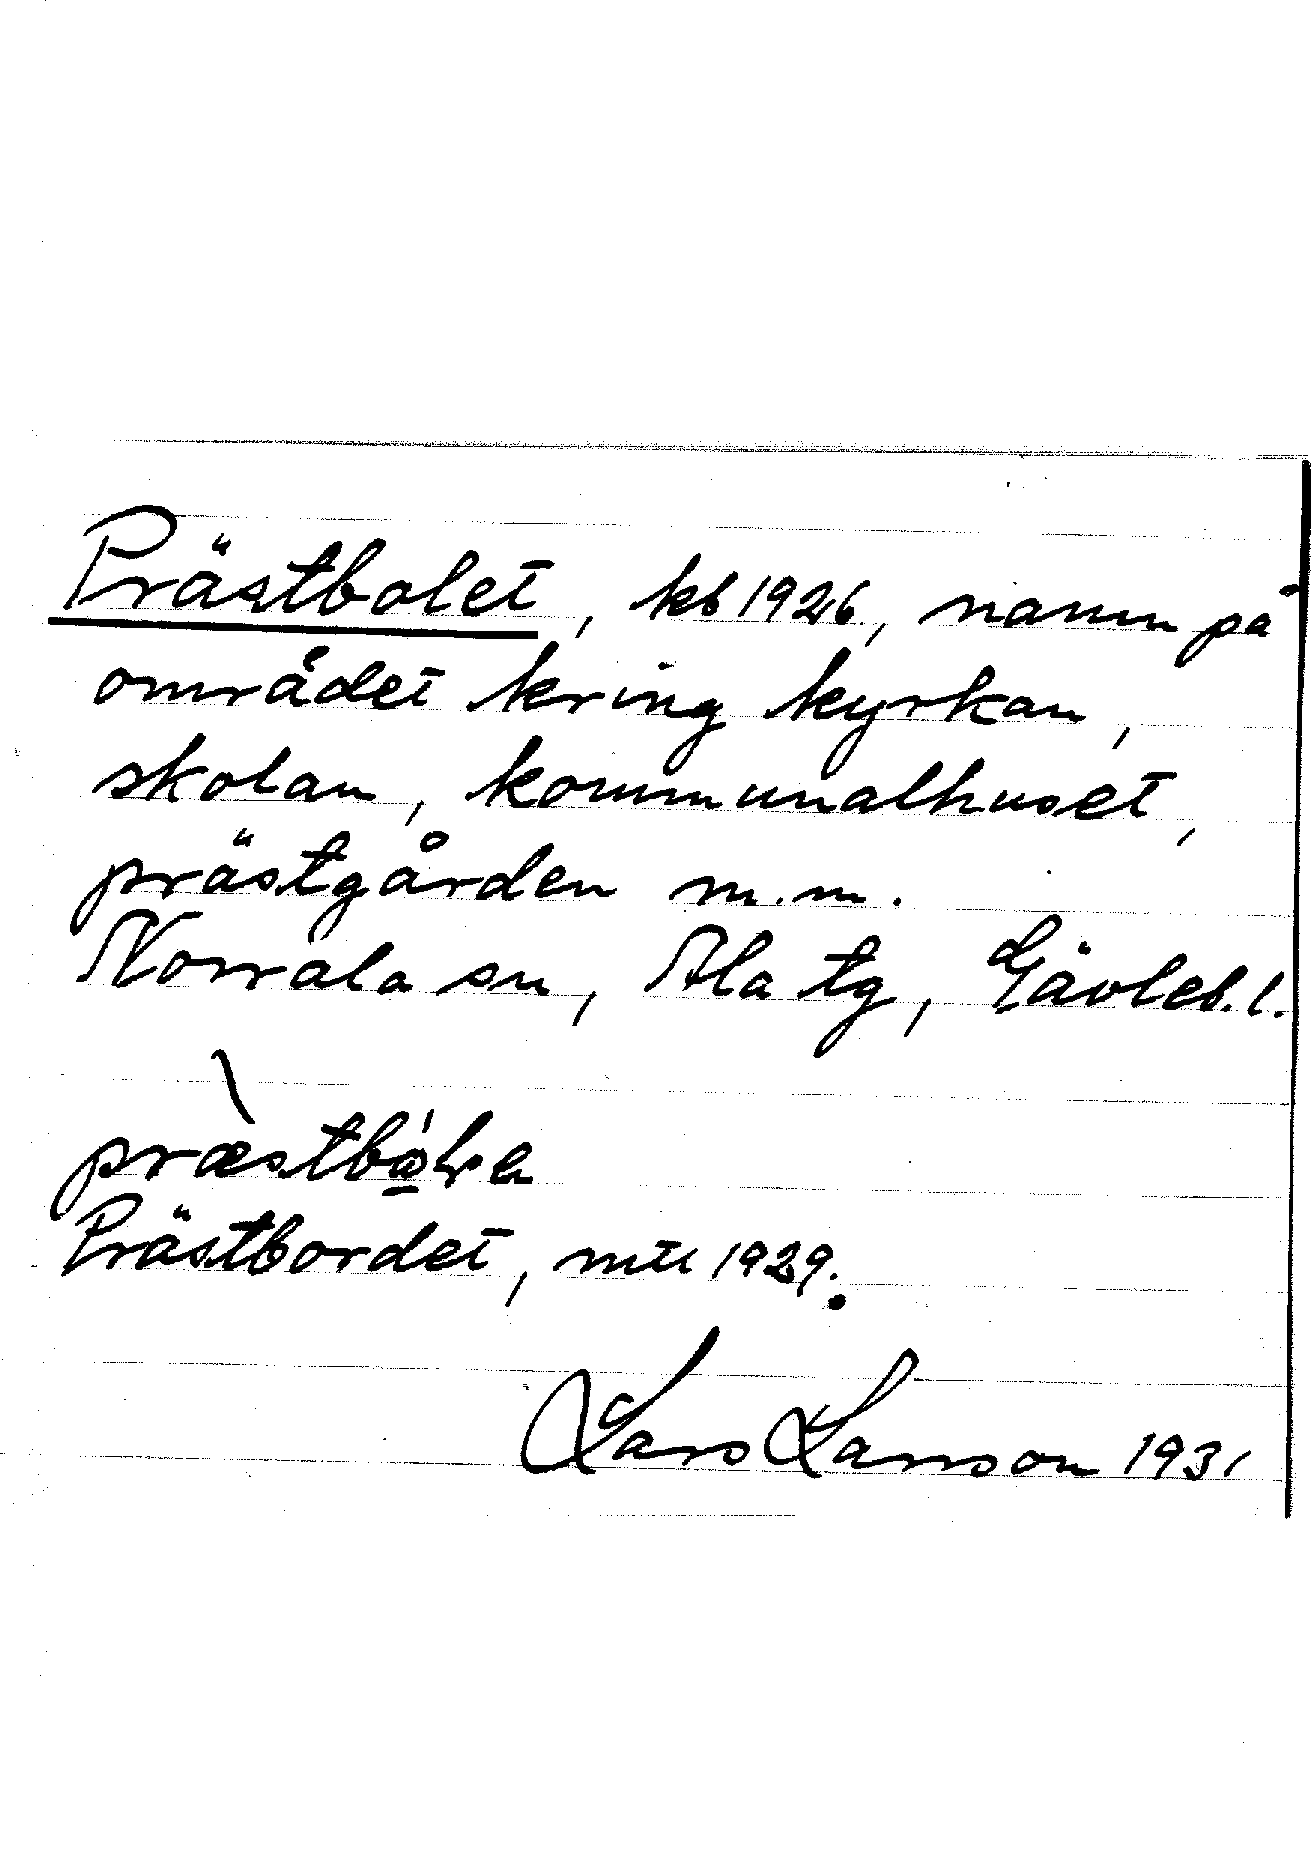 Prästbolet, kb 1926, namn på
området kring kyrkan,
skolan, kommunalhuset,
prästgården m.m.
Norrala sn, Ala tg, Gävleb. l.
Prästbordet, mtl 1929.
Lars Larsson 1931